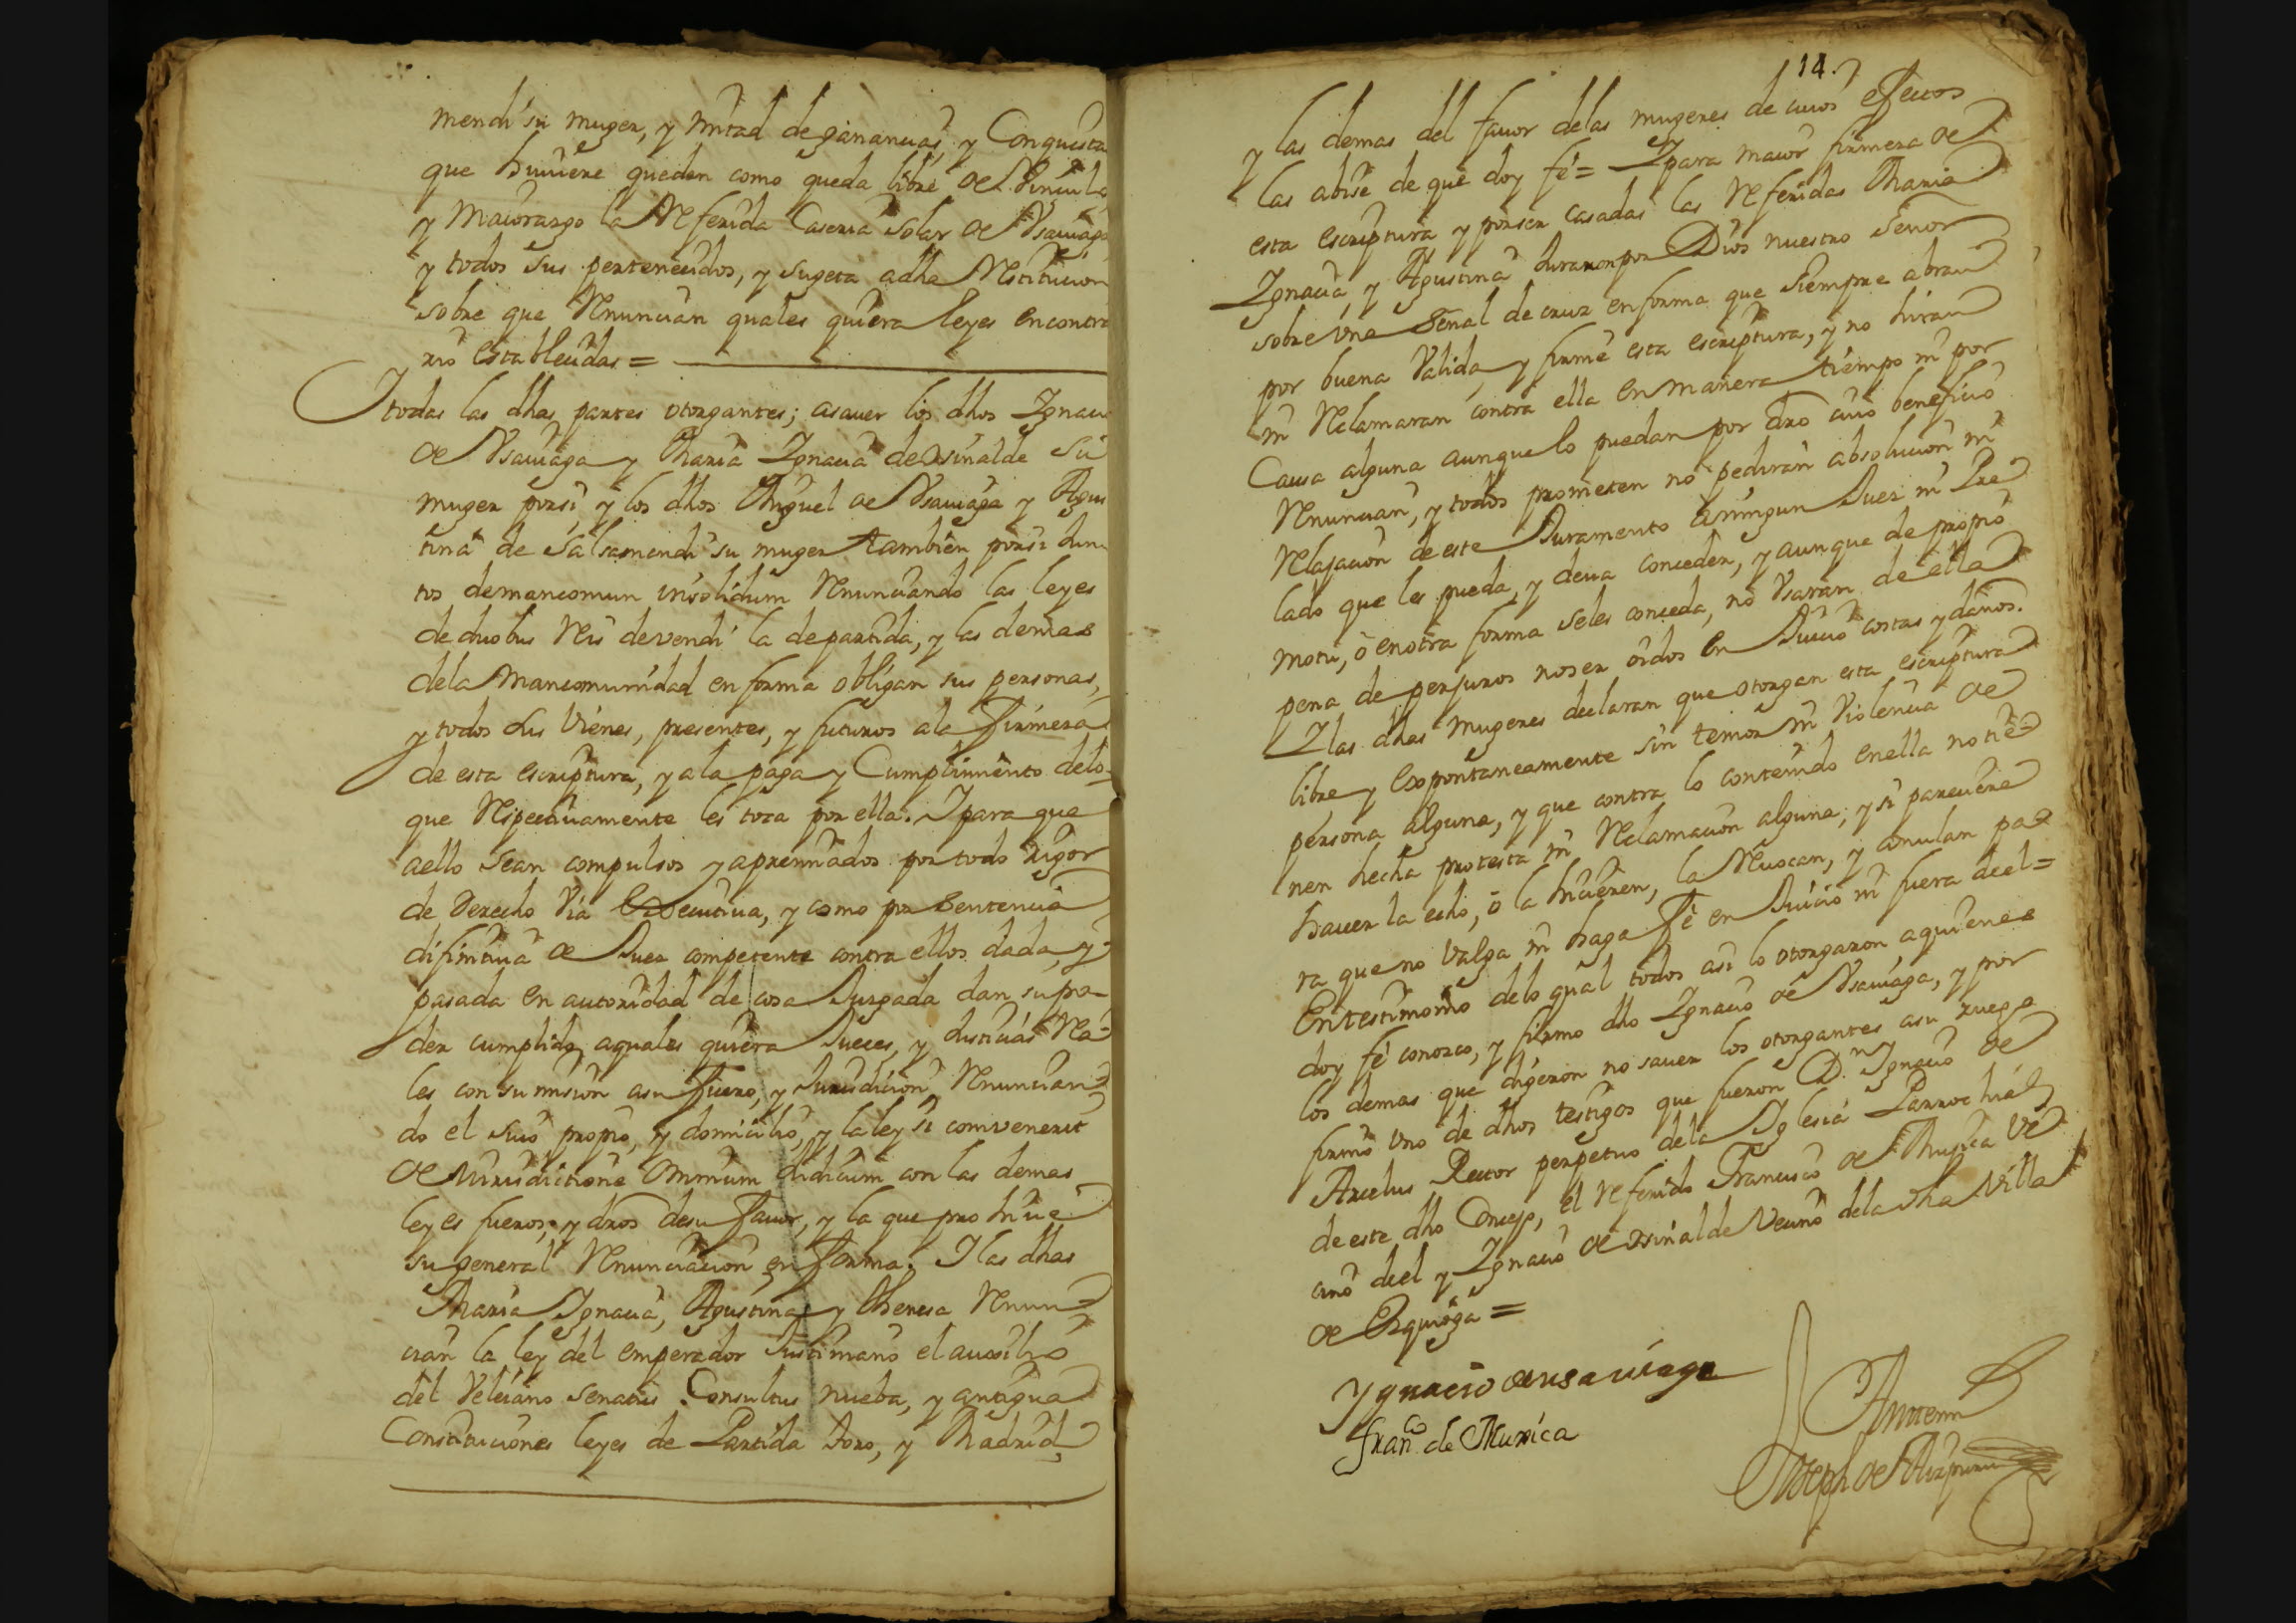 mendi su muger, y mitad de ganancias, y Conquista
que huuiere queden como queda libre de Vinculo
y Maiorazgo la Referida Caseria Solar de Vsauiaga
y todos sus pertenecidos, y sugeta adha Restitucion
sobre que Renuncian quales quiera leyes encontra
rio establecidas =
Y todas las dhas partes otorgantes; asauer los dhos Ignacio
de Vsauiaga y Maria Ignacia de Osinalde su
muger porsi, y los dhos Miguel de Vsauiaga y Agus
tina de Salsamendi su muger tambien porsi Jun
tos demancomun insolidum Renunciando las leyes
de duobus Reis devendi la departida, y las demas
dela Mancomunidad en forma obligan sus personas,
y todos sus Vienes, presentes, y futuros ala firmeza
de esta escriptura, y ala paga y Cumplimiento delo
que Respectiuamente les toca por ella. Y para que
aello sean compulsos y apremiados por todo rigor
de derecho Via Executiua, y como por Sentencia
difinitiua de Juez competente contra ellos dada, y
pasada en autoridad de cosa Juzgada dan su po
der cumplido aquales quiera Jueces, y Justicias Rea
les con su mision asu fuero, y Jurisdicion, Renuncian
do el suio propio, y domicilio, y la ley si convenerit
de Jurisdictione Omnium Judicum con las demas
leyes fueros, y dros desu fauor, y la que prohiue
su general Renunciacion en forma. Y las dhas
Maria Ignacia, Agustina y Theresa Renun
cian la ley del emperador Justiniano el auxilio
del Veleiano Senatus Consultus nueba, y antigua
Constituciones leyes de Partida toro, y Madrid,
14.
y las demas del fauor delas mugeres de cuios efectos
las abise de que doy fé = Y para maior firmeza de
esta escriptura y por ser casadas las Referidas Maria
Ignacia, y Agustina Juraron por Dios nuestro Señor
sobre Vna Señal de cruz en forma que siempre abran
por buena Valida, y firme esta escriptura, y no hiran
ni Reclamaran contra ella en manera tiempo ni por
Causa alguna aunque lo puedan por dro cuio beneficio
Renuncian, y todos prometen no pediran absolucion ni
Relajacion de este Juramento aningun Juez ni Pre
lado que les pueda, y deua conceder, y aunque de propio
motu, ó en otra forma seles conceda, no Vsaran de ella
pena de perjuros no ser oidos en Juicio costas y daños.
Y las dhas mugeres declaran que otorgan esta escriptura
libre y Expontaneamente sin temor ni Violencia de
persona alguna, y que contra lo contenido en ella no tie
nen hecha protesta ni Reclamacion alguna; y si pareciere
hauer la echo, ó la hicieren, la Reuocan, y anulan pa
ra que no Valga ni haga fé en Juicio ni fuera de el =
En testimonio delo qual todos asi lo otorgaron, aquienes
doy fé conozco, y firmo dho Ignacio de Vsauiaga, y por
los demas que digeron no sauer los otorgantes asu ruego
firmo Vno de dhos testigos que fueron Dn. Ignacio de
Arcelus Rector perpetuo dela Iglesia Parrochial
de este dho Concejo, el referido Francisco de Muxica Ve
cino de el y Ignacio de Osinalde Vecino dela dha Villa
de Ezquioga =
Ygnacio deusauiaga
Franco de Muxica
Antemi
Joseph de Aizpuru